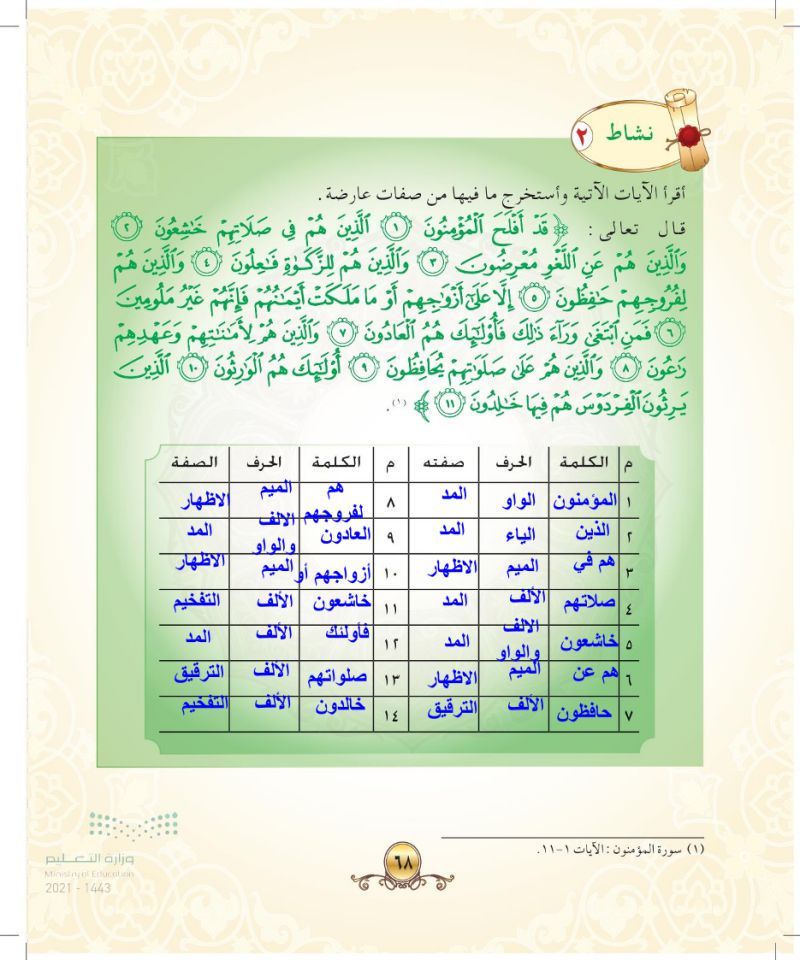 نشاط ٢
أقرأ الآيات الآتية وأستخرج ما فيها من صفات عارضة.
قال تعالى: ﴿ قَدْ أَفْلَحَ الْمُؤْمِنُونَ ١ الَّذِينَ هُمْ فِي صَلَاتِهِمْ خَاشِعُونَ ٢
وَالَّذِينَ هُمْ عَنِ اللَّغْوِ مُعْرِضُونَ ٣ وَالَّذِينَ هُمْ لِلزَّكَوٰةِ فَاعِلُونَ ٤ وَالَّذِينَ هُمْ
لِفُرُوجِهِمْ حَافِظُونَ ٥ إِلَّا عَلَىٰ أَزْوَاجِهِمْ أَوْ مَا مَلَكَتْ أَيْمَانُهُمْ فَإِنَّهُمْ غَيْرُ مَلُومِينَ
٦ فَمَنِ ابْتَغَىٰ وَرَاءَ ذَٰلِكَ فَأُولَٰئِكَ هُمُ الْعَادُونَ ٧ وَالَّذِينَ هُمْ لِأَمَانَاتِهِمْ وَعَهْدِهِمْ
رَاعُونَ ٨ وَالَّذِينَ هُمْ عَلَىٰ صَلَوَاتِهِمْ يُحَافِظُونَ ٩ أُولَٰئِكَ هُمُ الْوَارِثُونَ ١٠ الَّذِينَ
يَرِثُونَ الْفِرْدَوْسَ هُمْ فِيهَا خَالِدُونَ ١١ ﴾ (١).
م الكلمة الحرف صفته م الكلمة الحرف الصفة
١ المؤمنون الواو المد ٨ هم لفروجهم الميم الاظهار
٢ الذين الياء المد ٩ العادون الالف والواو المد
٣ هم في الميم الاظهار ١٠ أزواجهم أو الميم الاظهار
٤ صلاتهم الألف المد ١١ خاشعون الألف التفخيم
٥ خاشعون الالف والواو المد ١٢ فأولئك الألف المد
٦ هم عن الميم الاظهار ١٣ صلواتهم الألف الترقيق
٧ حافظون الألف الترقيق ١٤ خالدون الألف التفخيم
(١) سورة المؤمنون: الآيات ١-١١.
٦٨
وزارة التعليم
Ministry of Education
2021 - 1443